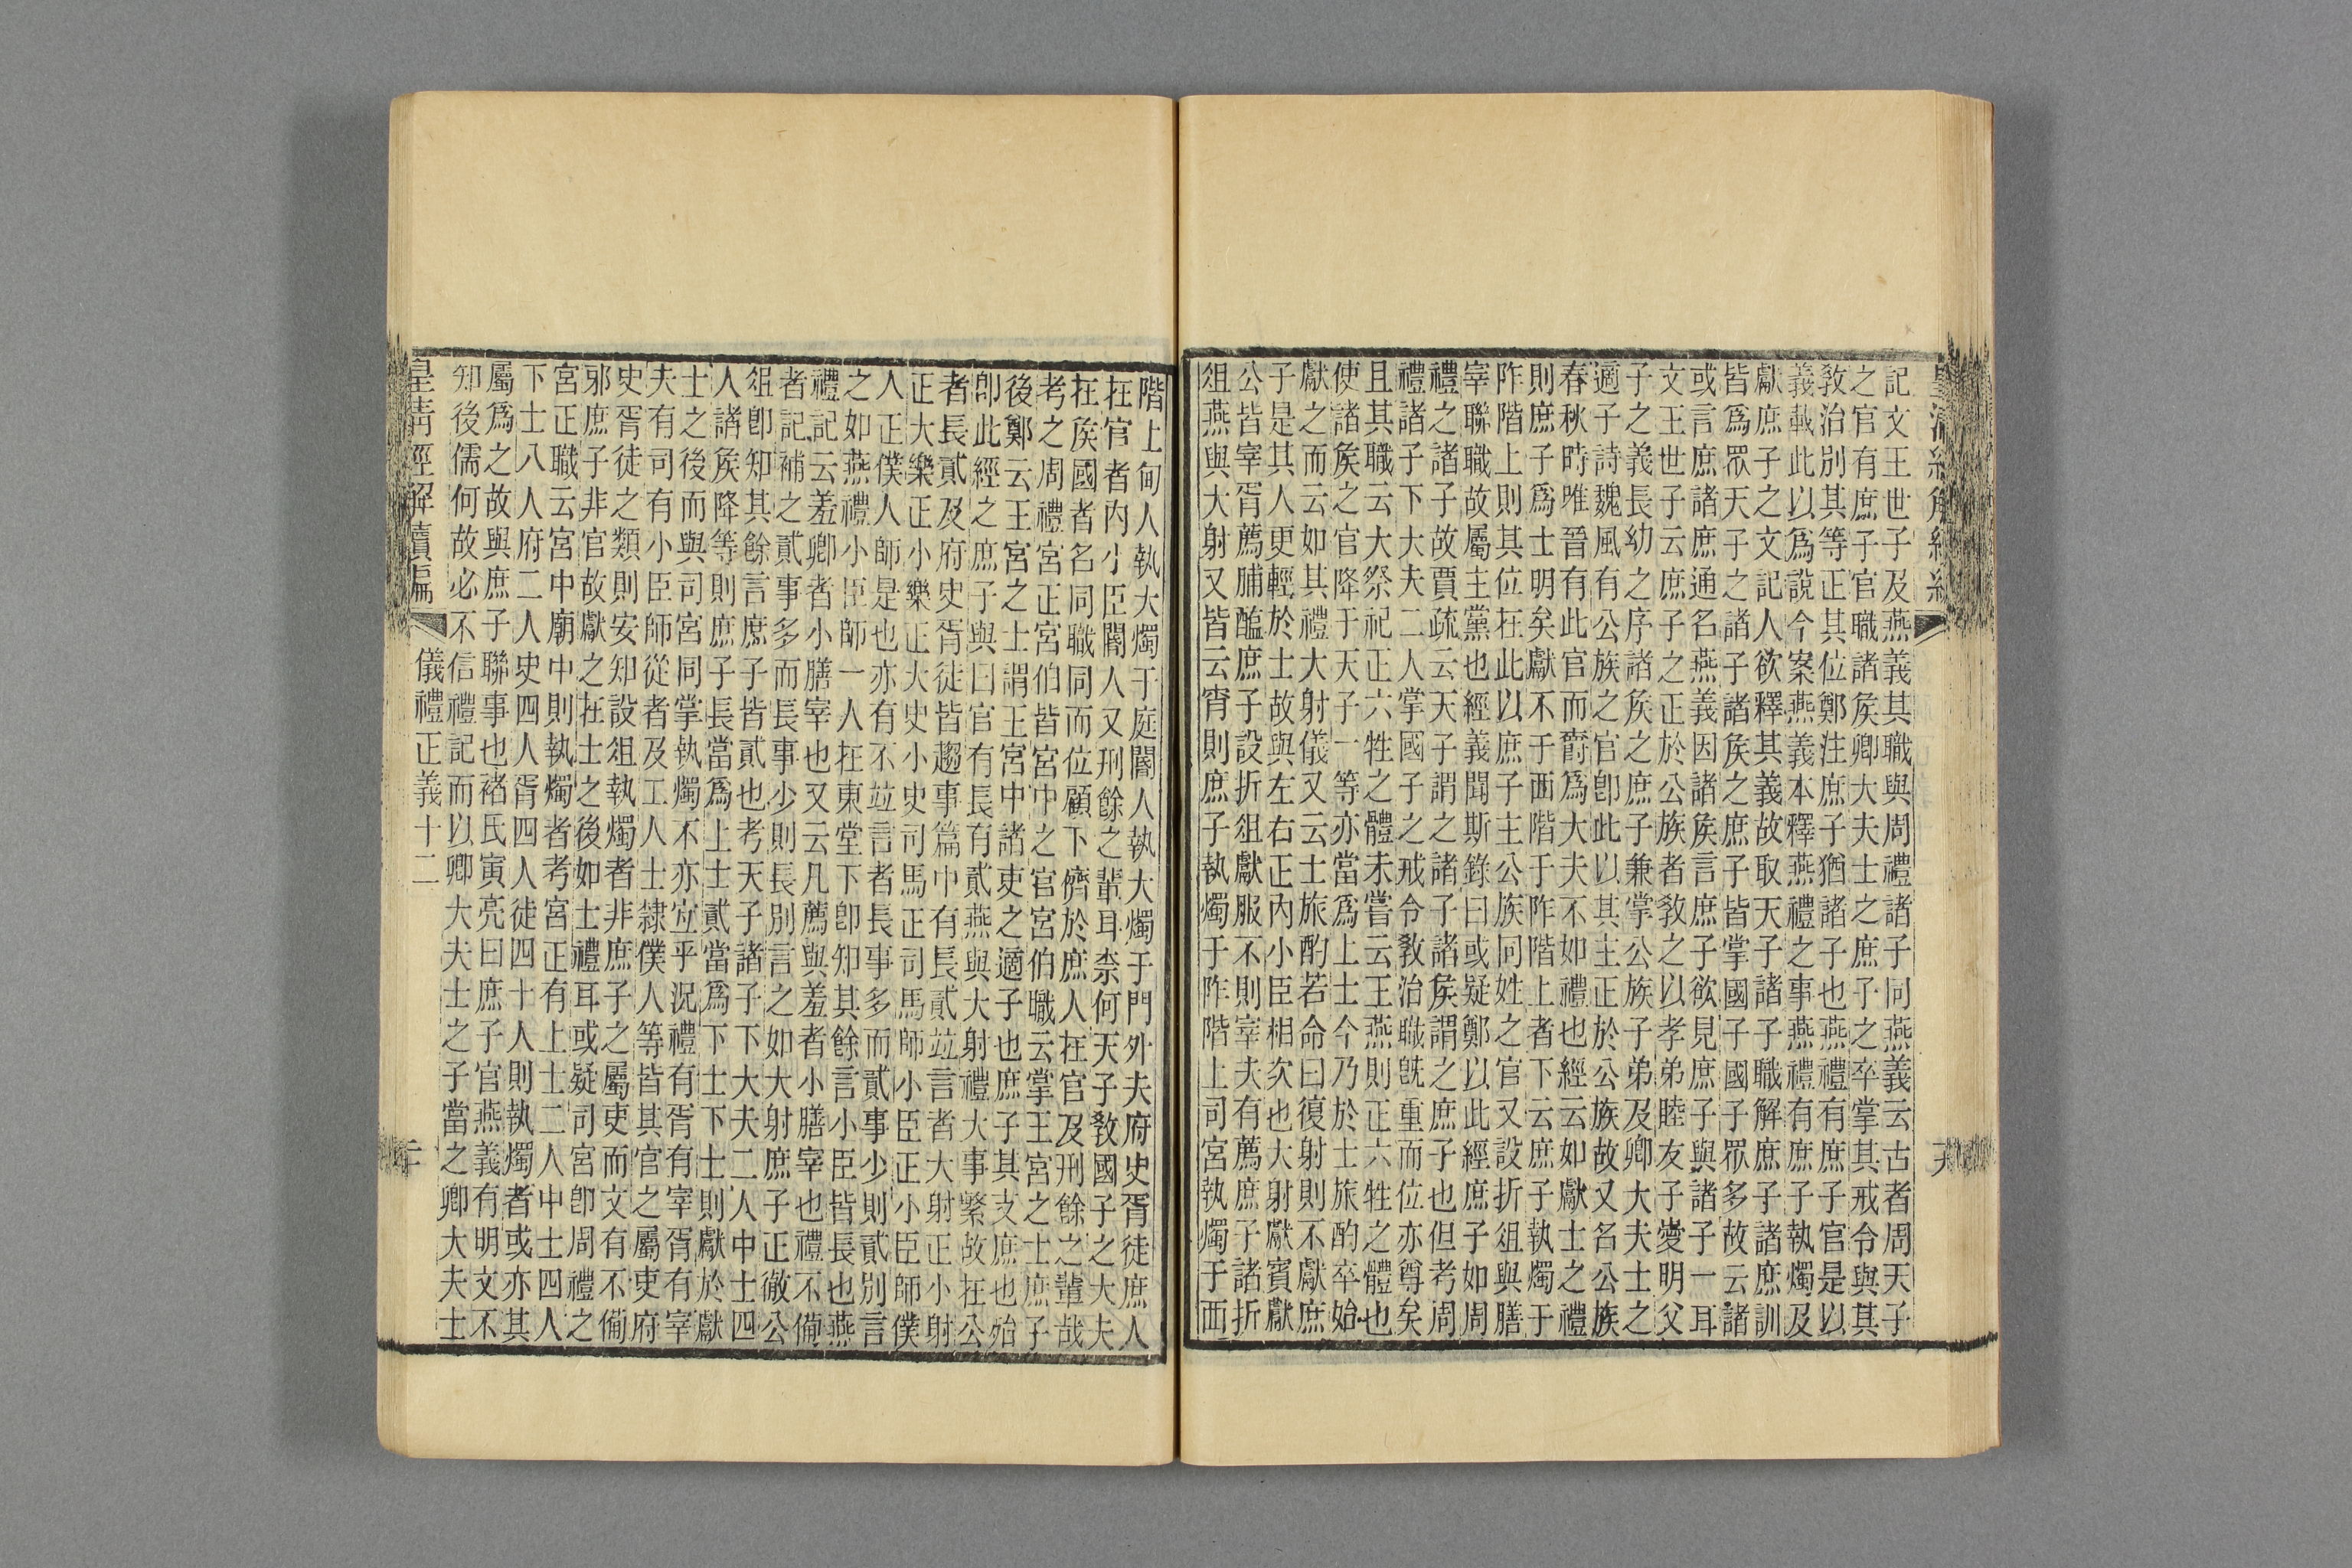 記文王世子及燕義其職與周禮諸子同燕義云古者周天子
之官有庶子官職諸矦卿大夫士之庶子之卒掌其戒令與其
敎治別其等正其位鄭注庶子猶諸子也燕禮有庶子官是以
義載此以爲說今案燕義本釋燕禮之事燕禮有庶子執燭及
獻庶子之文記人欲釋其義故取天子諸子職解庶子諸庶訓
皆爲眾天子之諸子諸矦之庶子皆掌國子國子眾多故云諸
或言庶諸庶通名燕義因諸矦言庶子欲見庶子與諸子一耳
文王世子云庶子之正於公族者敎之以孝弟睦友子愛明父
子之義長幼之序諸矦之庶子兼掌公族子弟及卿大夫士之
適子詩魏風有公族之官卽此以其主正於公族故又名公族
春秋時唯晉有此官而爵爲大夫不如禮也經云如獻士之禮
則庶子爲士明矣獻不于西階于阼階上者下云庶子執燭于
阼階上則其位在此以庶子主公族同姓之官又設折俎與膳
宰聯職故屬主黨也經義聞斯錄曰或疑鄭以此經庶子如周
禮之諸子故賈疏云天子謂之諸子諸矦謂之庶子也但考周
禮諸子下大夫二人掌國子之戒令敎治職旣重而位亦尊矣
且其職云大祭祀正六牲之體未嘗云王燕則正六牲之體也
使諸矦之官降于天子一等亦當爲上士今乃於士旅酌卒始
獻之而云如其禮大射儀又云士旅酌若命曰復射則不獻庶
子是其人更輕於士故與左右正內小臣相次也大射獻賓獻
公皆宰胥薦脯醢庶子設折俎獻服不則宰夫有薦庶子諸折
俎燕與大射又皆云宵則庶子執燭于阼階上司宮執燭于西
階上甸人執大燭于庭閽人執大燭于門外夫府史胥徒庶人
在官者內小臣閽人又刑餘之輩耳柰何天子敎國子之大夫
在矦國者名同職同而位顧下儕於庶人在官及刑餘之輩哉
考之周禮宮正宮伯皆宮中之官宮伯職云掌王宮之士庶子
後鄭云王宮之士謂王宮中諸吏之適子也庶子其支庶也殆
卽此經之庶子與曰官有長有貳燕與大射禮大事繁故在公
者長貳及府史胥徒皆趨事篇中有長貳竝言者大射正小射
正大樂正小樂正大史小史司馬正司馬師小臣正小臣師僕
人正僕人師是也亦有不竝言者長事多而貳事少則貳別言
之如燕禮小臣師一人在東堂下卽知其餘言小臣皆長也燕
禮記云羞卿者小膳宰也又云凡薦與羞者小膳宰也禮不備
者記補之貳事多而長事少則長別言之如大射庶子正徹公
俎卽知其餘言庶子皆貳也考天子諸子下大夫二人中士四
人諸矦降等則庶子長當爲上士貳當爲下士下士則獻於獻
士之後而與司宮同掌執燭不亦宜乎況禮有胥有宰胥有宰
夫有司有小臣師從者及工人士隸僕人等皆其官之屬吏府
史胥徒之類則安知設俎執燭者非庶子之屬吏而文有不備
邪庶子非官故獻之在士之後如士禮耳或疑司宮卽周禮之
宮正職云宮中廟中則執燭者考宮正有上士二人中士四人
下士八人府二人史四人胥四人徒四十人則執燭者或亦其
屬爲之故與庶子聯事也褚氏寅亮曰庶子官燕義有明文不
知後儒何故必不信禮記而以卿大夫士之子當之卿大夫士
皇淸經解續編 儀禮正義十二